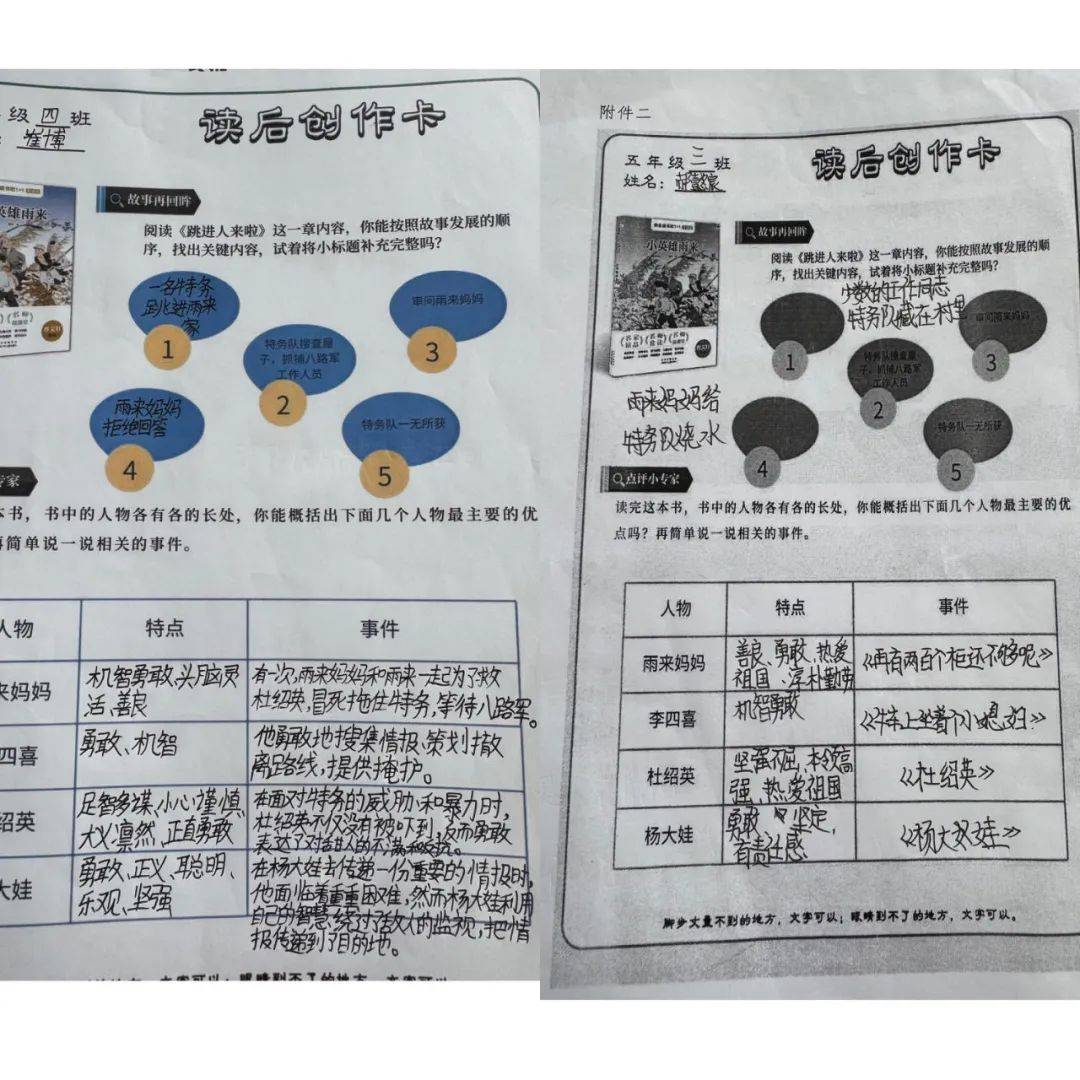 级四班
崔博
读后创作卡
英雄雨来
故事再回眸
阅读《跳进人来啦》这一章内容，你能按照故事发展的顺
序，找出关键内容，试着将小标题补充完整吗？
一名特务
跳进雨来
家
1
特务队搜查屋
子，抓捕八路军
工作人员
2
审问雨来妈妈
3
雨来妈妈
拒绝回答
4
特务队一无所获
5
专家
本书，书中的人物各有各的长处，你能概括出下面几个人物最主要的优
再简单说一说相关的事件。
人物 特点 事件
来妈妈
机智勇敢、头脑灵
活、善良
有一次，雨来妈妈和雨来一起为了救
杜绍英，冒死拖住特务，等待八路军。
四喜
勇敢、机智
他勇敢地搜集情报、策划撤
离路线，提供掩护。
绍英
足智多谋、小心谨慎、
大义凛然、正直勇敢
在面对特务的威胁和暴力时，
杜绍英不仅没有被吓到，反而勇敢
表达了对敌人的不满和
大娃
勇敢、正义、聪明、
乐观、坚强
在杨大娃去传递一份重要的情报时，
他面临着重重困难，然而杨大娃利用
自己的智慧，绕过了敌人的监视，把情
报传递到了目的地。
附件二
五年级三班
姓名：
读后创作卡
小英雄雨来
故事再回眸
阅读《跳进人来啦》这一章内容，你能按照故事发展的顺
序，找出关键内容，试着将小标题补充完整吗？
少数的工作同志
特务队藏在村里
1
特务队搜查屋
子，抓捕八路军
工作人员
2
审问雨来妈妈
3
雨来妈妈给
特务队烧水
4
特务队一无所获
5
点评小专家
读完这本书，书中的人物各有各的长处，你能概括出下面几个人物最主要的优
点吗？再简单说一说相关的事件。
人物 特点 事件
雨来妈妈
善良、勇敢、热爱
祖国、淳朴勤劳
《再有两百个柜还不够呢》
李四喜
机智勇敢
《牛车上坐着个小媳妇》
杜绍英
坚强不屈、本领高
强、热爱祖国
《杜绍英》
杨大娃
勇敢、坚定，
有责任感
《杨大娃》
脚步丈量不到的地方，文字可以；眼睛到不了的地方，文字可以。